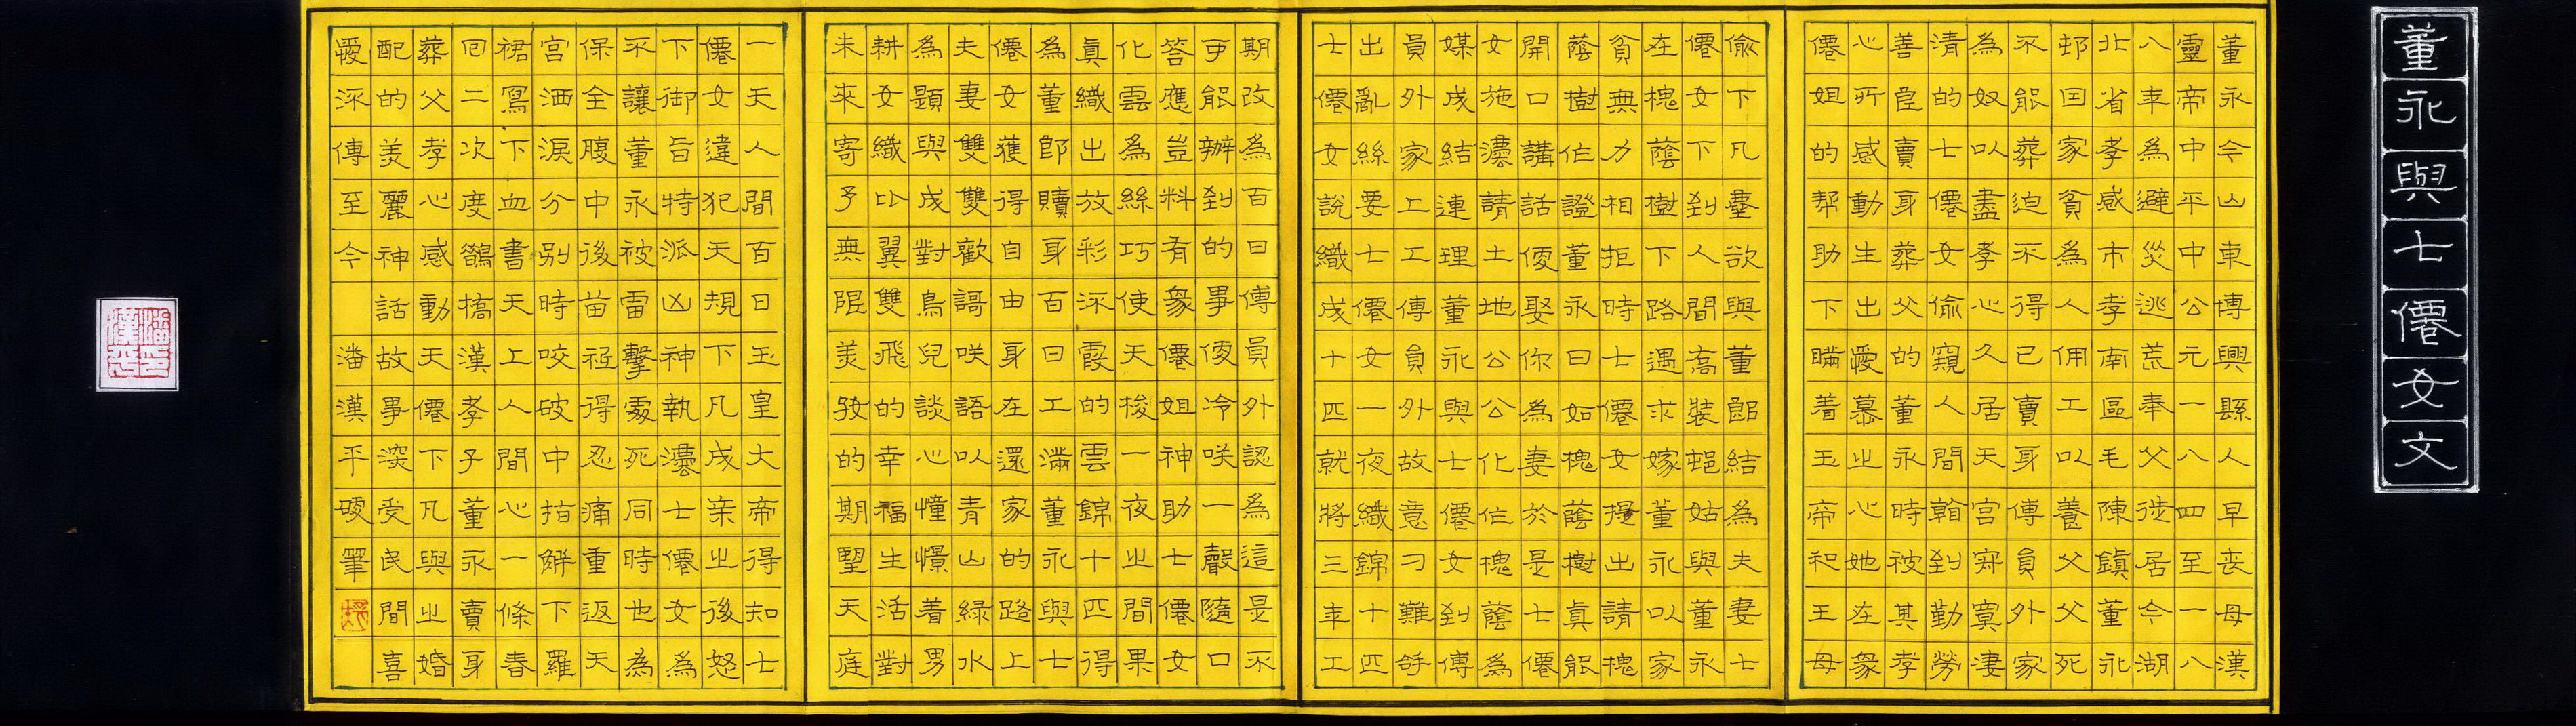 董永與七僊女文
董永今山東博興縣人早丧母漢
靈帝中平中公元一八四至一八
八年為避災逃荒奉父徙居今湖
北省孝感市孝南區毛陳鎮董永
邨囙家貧為人佣工以養父父死
不能葬迫不得已賣身傅員外家
為奴以盡孝心久居天宮寂寞凄
清的七僊女偷窺人間翰到勤勞
善良賣身葬父的董永時被其孝
心所感動生出愛慕之心她在衆
僊姐的帮助下瞞着玉帝和王母
偷下凡塵欲與董郎結為夫妻七
僊女下到人間喬裝邨姑與董永
在槐蔭樹下路遇求嫁董永以家
貧無力相拒時七僊女提出請槐
蔭樹作證董永曰如槐蔭樹真能
開口講話便娶你為妻於是七僊
女施灋請土地公公化作槐蔭為
媒成結連理董永與七僊女到傅
員外家上工傅員外故意刁難
出亂絲要七僊女一夜織錦十匹
七僊女說織成十匹就將三年工
期改為百日傅員外認為這是不
可能辦到的事便冷咲一聲隨口
答應豈料有衆僊姐神助七僊女
化雲為絲巧使天梭一夜之間果
真織出放彩流霞的雲錦十匹得
為董郎贖身百日工滿董永與七
僊女獲得自由身在還家的路上
夫妻雙雙歡謌咲語以青山綠水
為題與成對鳥兒談心憧憬着男
耕女織比翼雙飛的幸福生活對
未來寄予無限美好的期望天庭
一天人間百日玉皇大帝得知七
僊女違犯天規下凡成亲之後怒
下御旨特派凶神執灋七僊女為
不讓董永被雷擊處死同時也為
保全腹中後苗祗得忍痛重返天
宮洒淚分别時咬破中指觧下羅
裙寫下血書天上人間心一條春
囘二次度鵲橋漢孝子董永賣身
葬父孝心感動天僊下凡與之婚
配的美麗神話故事深受民間喜
愛流傳至今 潘漢平硬筆